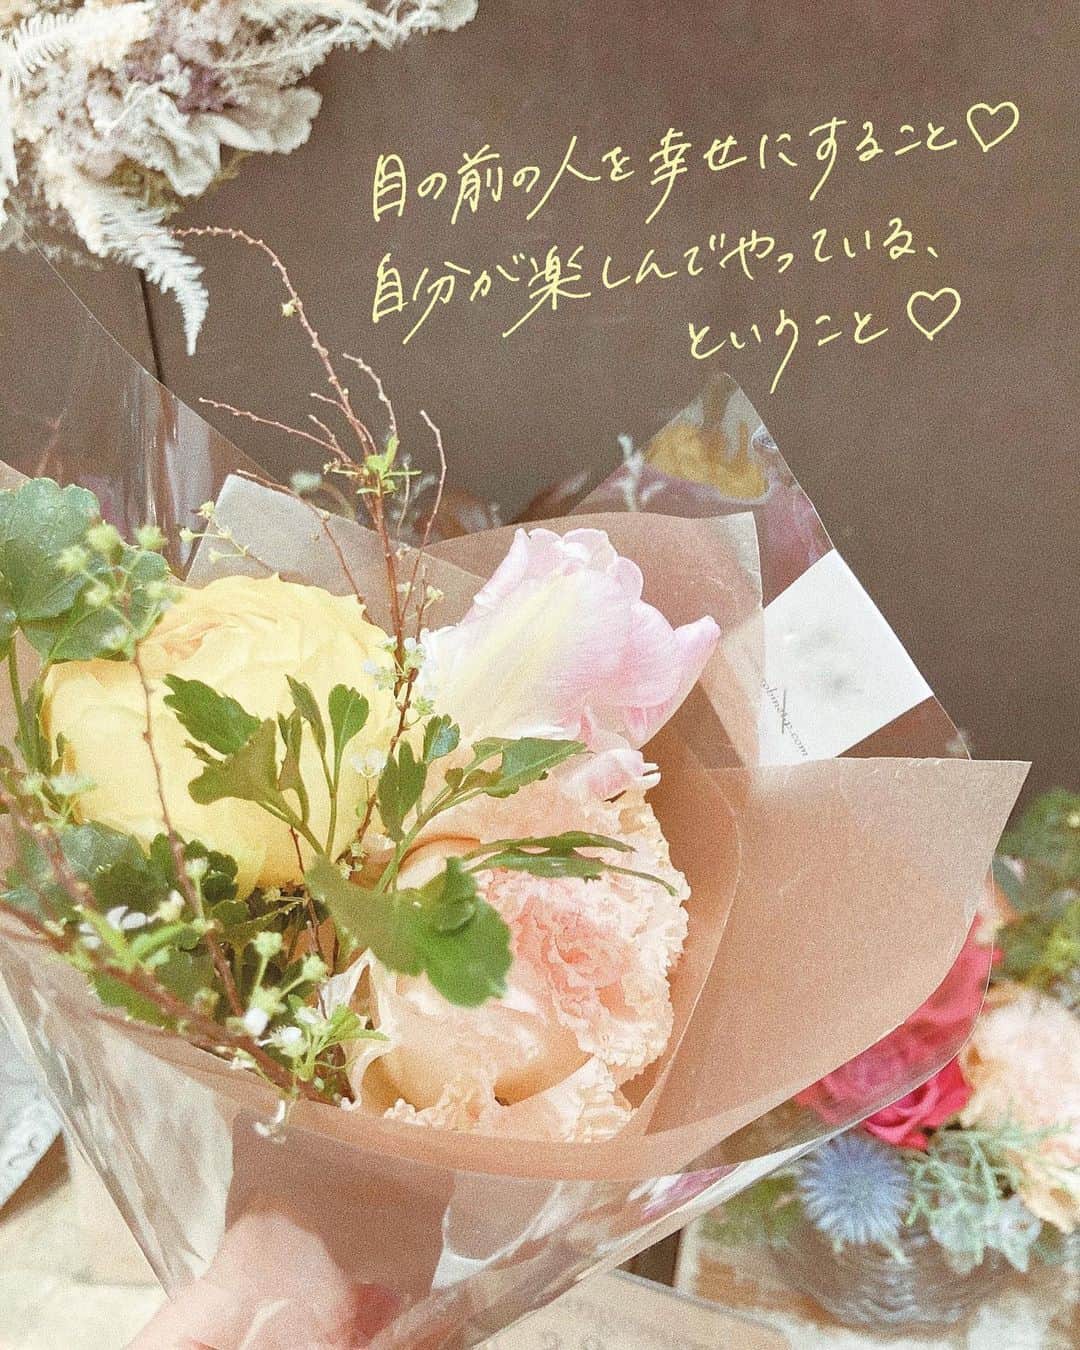 目の前の人を幸せにすること♡
自分が楽しんでやっている、
ということ♡